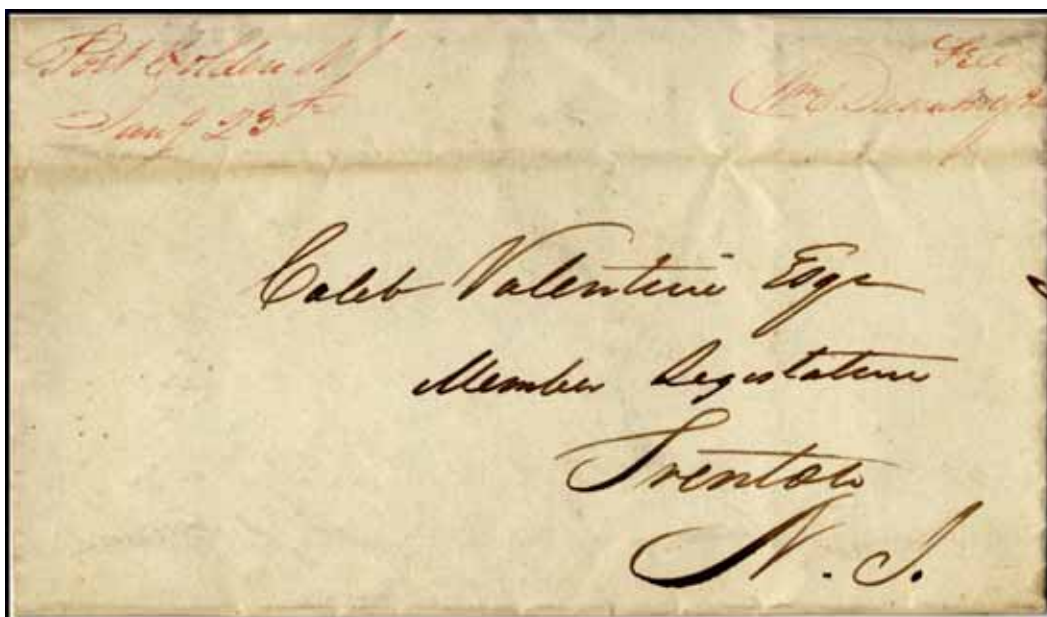 Port Colden N J
Jany 23th
Free
Wm
Caleb Valentine Esqr
Member Legistature
Trenton
N. J.